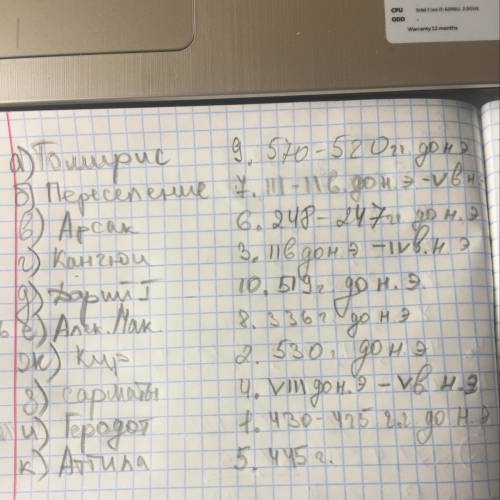 CPU Intel Core i3- 6006U 2.0GHz
ODD -
Warranty 12 months
а) Томирис 9. 570-520 гг. до н.э
б) Переселение 7. III-IIв. до н.э-Vв н.
в) Арсак 6. 248-247 г. до н.э.
г) Кангюи 3. IIв до н.э -IVв. н.э
д) Дарий I 10. 519 г до н.э.
е) Алек. Мак. 8. 336 г до н.э
ж) Кир 2. 530г. до н.э
з) сарматы 4. VIII до н.э -Vв н.э
и) Геродот 1. 430-425 г.г до н.э
к) Аттила 5. 445 г.